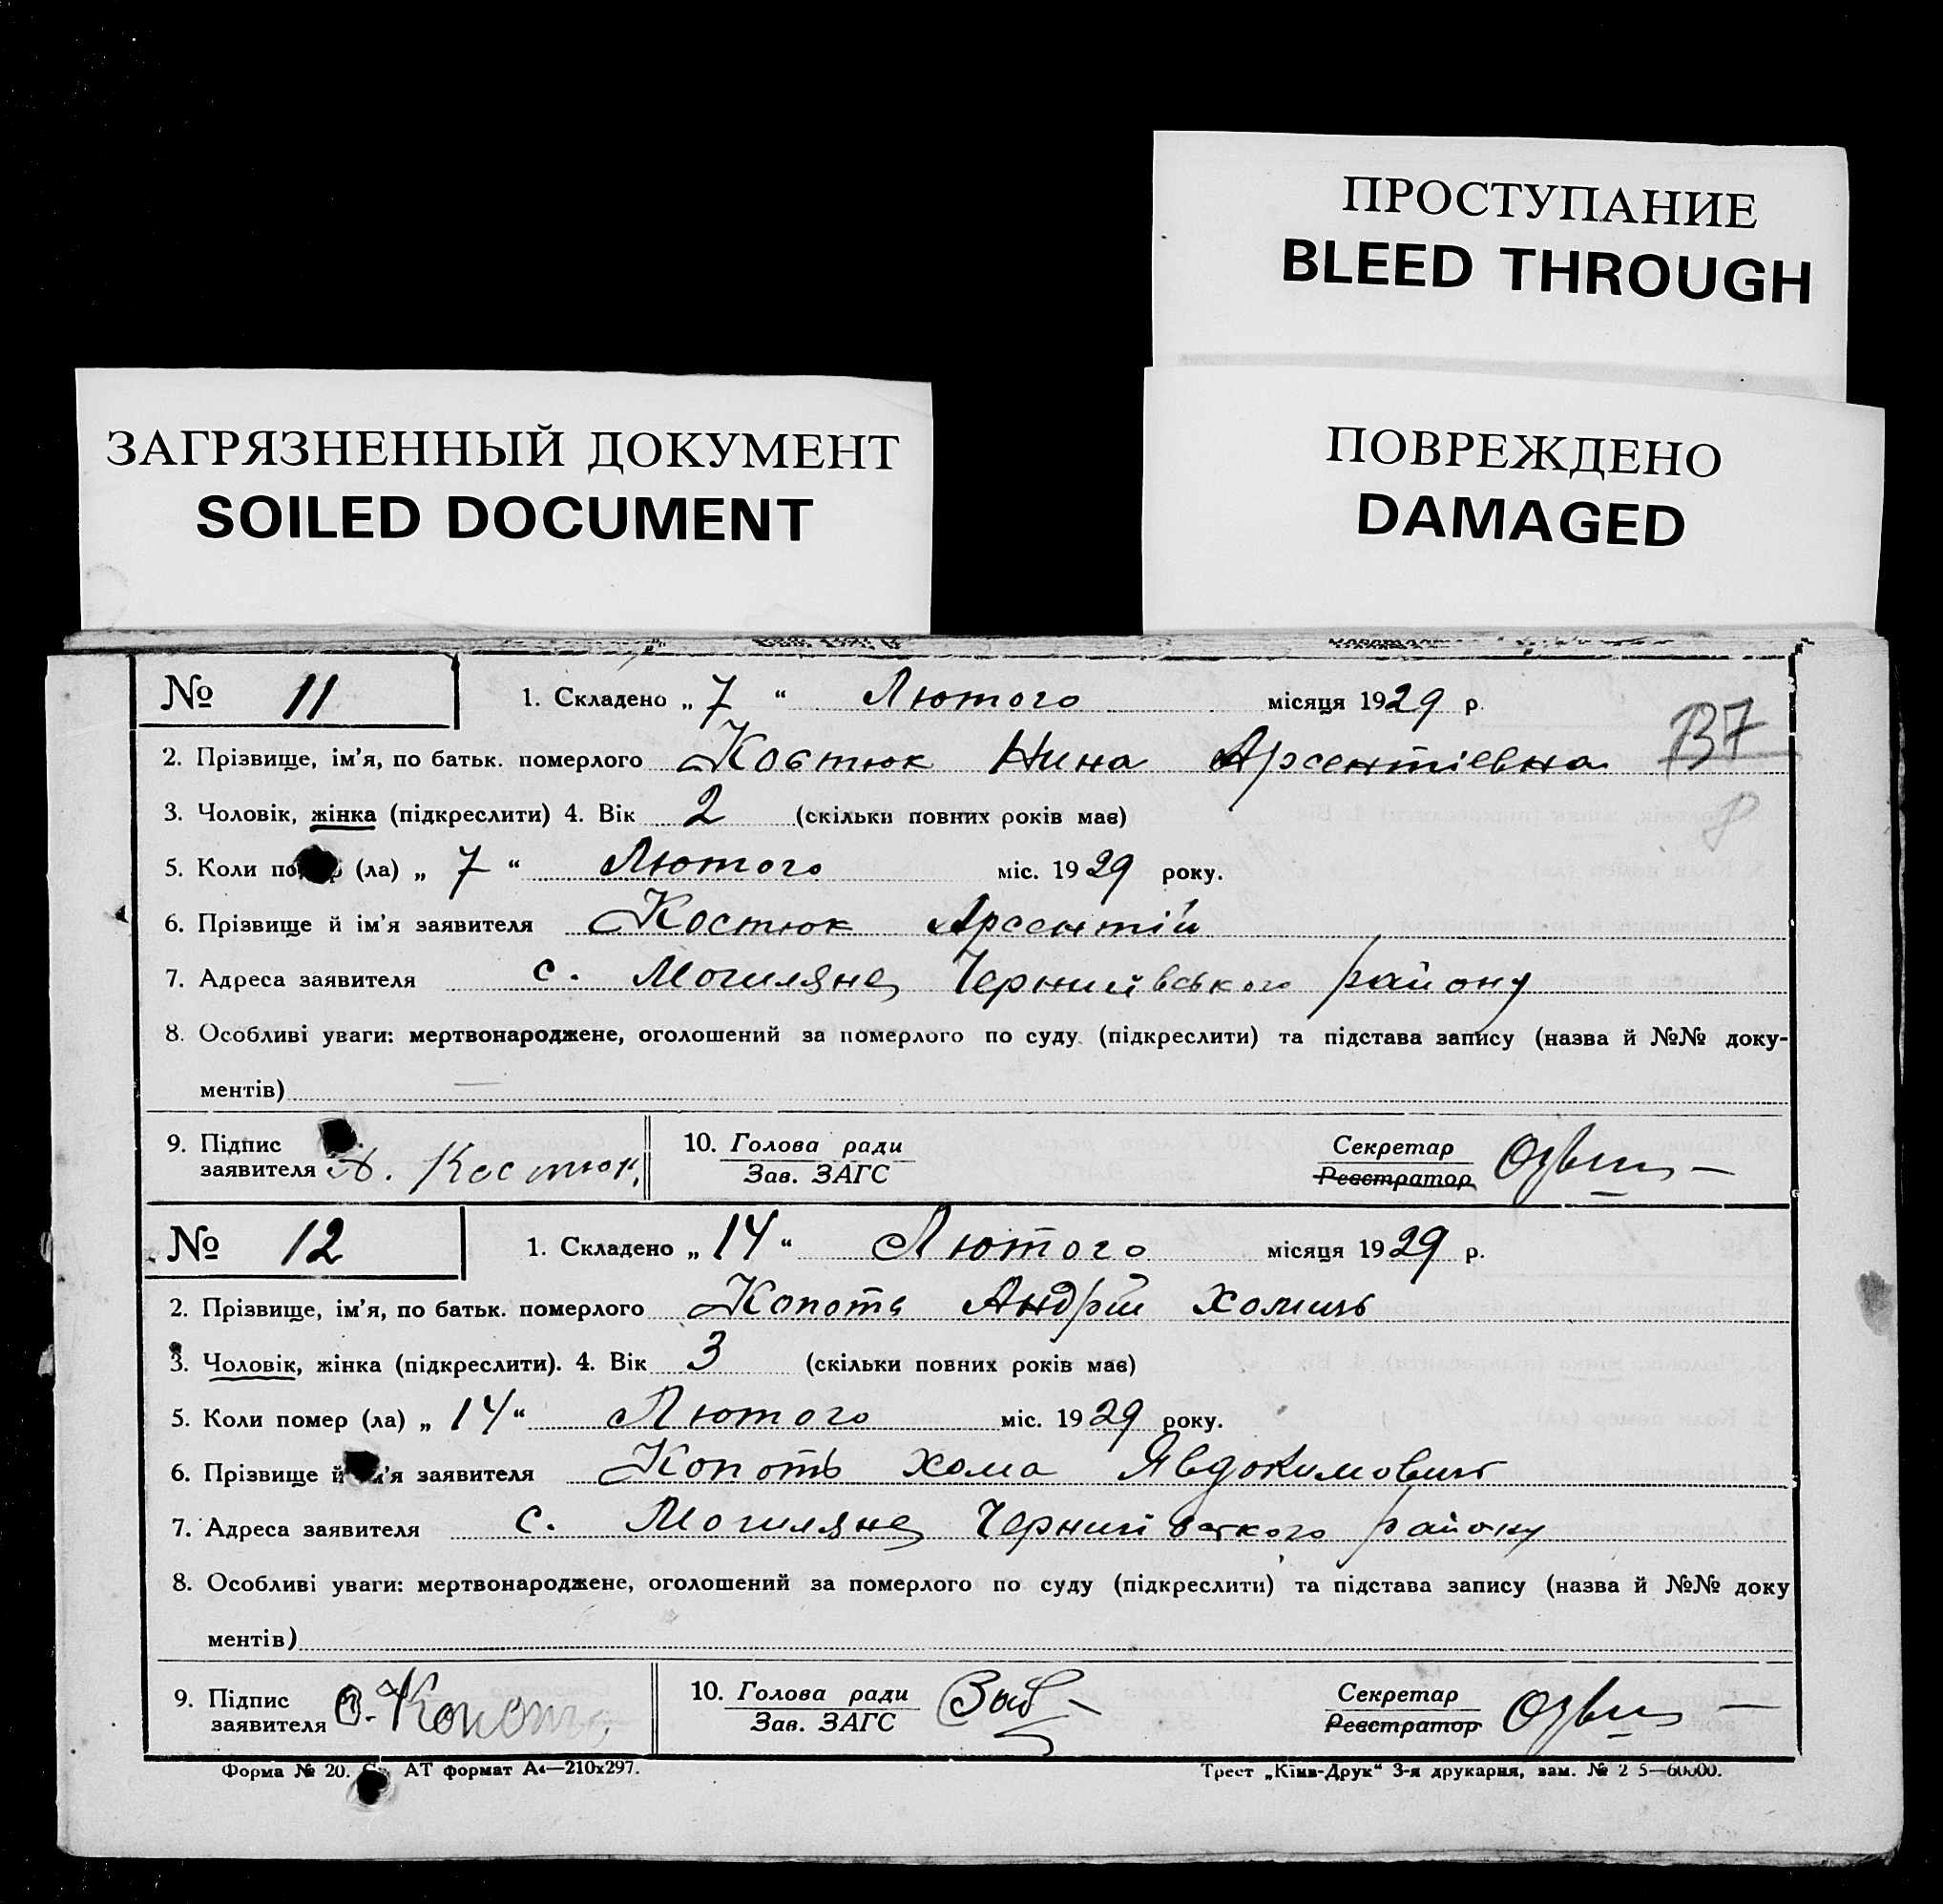 ПРОСТУПАНИЕ
BLEED THROUGH
ЗАГРЯЗНЕННЫЙ ДОКУМЕНТ
SOILED DOCUMENT
ПОВРЕЖДЕНО
DAMAGED
№ 11 1. Складено „ 7 “ Лютого місяця 1929 р.
2. Прізвище, ім'я, по батьк. померлого Костюк Нина Арсентіевна
3. Чоловік, жінка (підкреслити) 4. Вік 2 (скільки повних років має)
5. Коли (ла) „ 7 “ Лютого міс. 1929 року.
6. Прізвище й ім'я заявителя Костюк Арсентій
7. Адреса заявителя с. Могиляне районy
8. Особливі уваги: мертвонароджене, оголошений за померлого по суду (підкреслити) та підстава запису (назва й №№ доку-
ментів)
9. Підпис заявителя А. Костюк 10. Голова ради Зав. ЗАГС Секретар Реєстратор
№ 12 1. Складено „ 14 “ Лютого місяця 1929 р.
2. Прізвище, ім'я, по батьк. померлого Копоть Андрій Хомичь
3. Чоловік, жінка (підкреслити). 4. Вік 3 (скільки повних років має)
5. Коли помер (ла) „ 14 “ Лютого міс. 1929 року.
6. Прізвище й заявителя Копоть Хома Явдокимович
7. Адреса заявителя с. Могиляне району
8. Особливі уваги: мертвонароджене, оголошений за померлого по суду (підкреслити) та підстава запису (назва й №№ доку
ментів)
9. Підпис заявителя 10. Голова ради Зав. ЗАГС Секретар Реєстратор
Форма № 20. АТ формат А4—210х297. Трест „Київ-Друк“ 3-я друкарня, зам. №